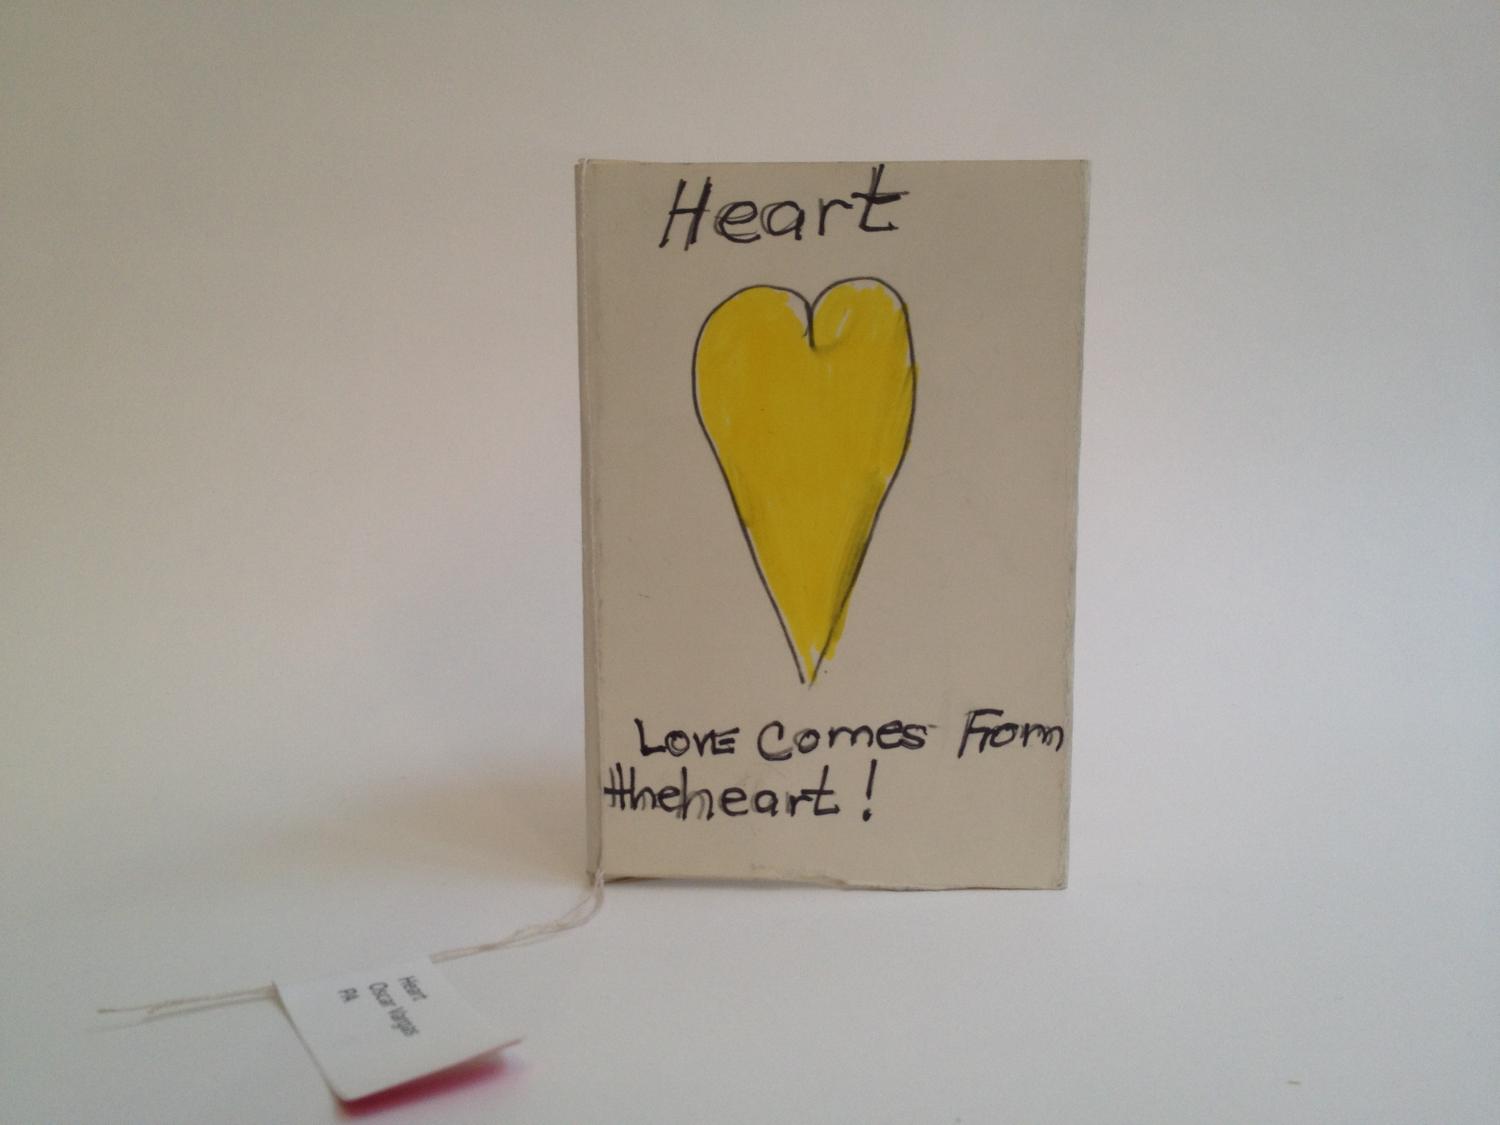 Heart
Love Comes From
the heart!
Heart
Oscar Vargas
PA